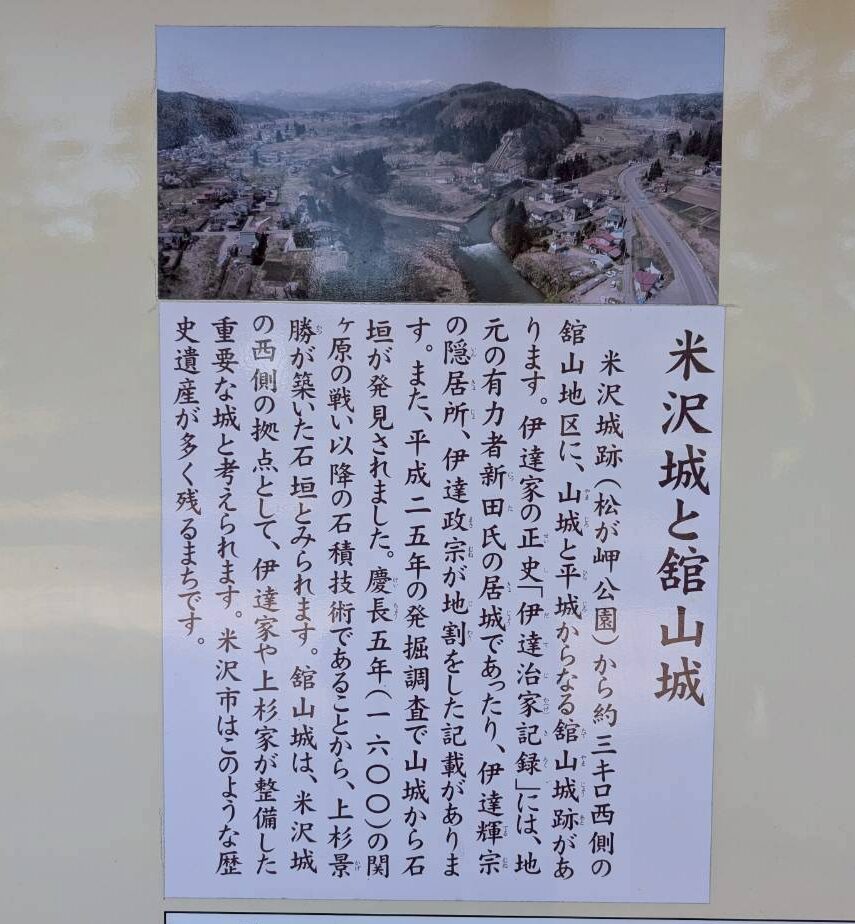 米沢城と舘山城
米沢城跡（松が岬公園）から約三キロ西側の
舘山地区に、山城と平城からなる舘山城跡があ
ります。伊達家の正史「伊達治家記録」には、地
元の有力者新田氏の居城であったり、伊達輝宗
の隠居所、伊達政宗が地割をした記載がありま
す。また、平成二五年の発掘調査で山城から石
垣が発見されました。慶長五年（一六〇〇）の関
ヶ原の戦い以降の石積技術であることから、上杉景
勝が築いた石垣とみられます。舘山城は、米沢城
の西側の拠点として、伊達家や上杉家が整備した
重要な城と考えられます。米沢市はこのような歴
史遺産が多く残るまちです。